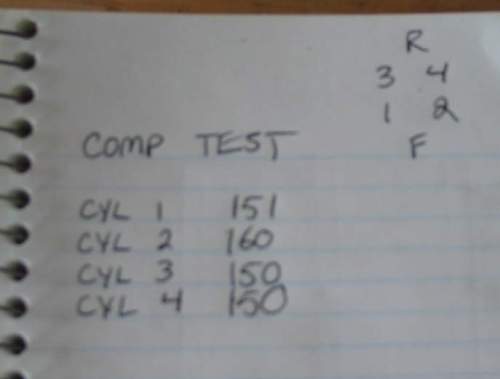 R
3 4
1 2
F
COMP TEST
CYL 1 151
CYL 2 160
CYL 3 150
CYL 4 150